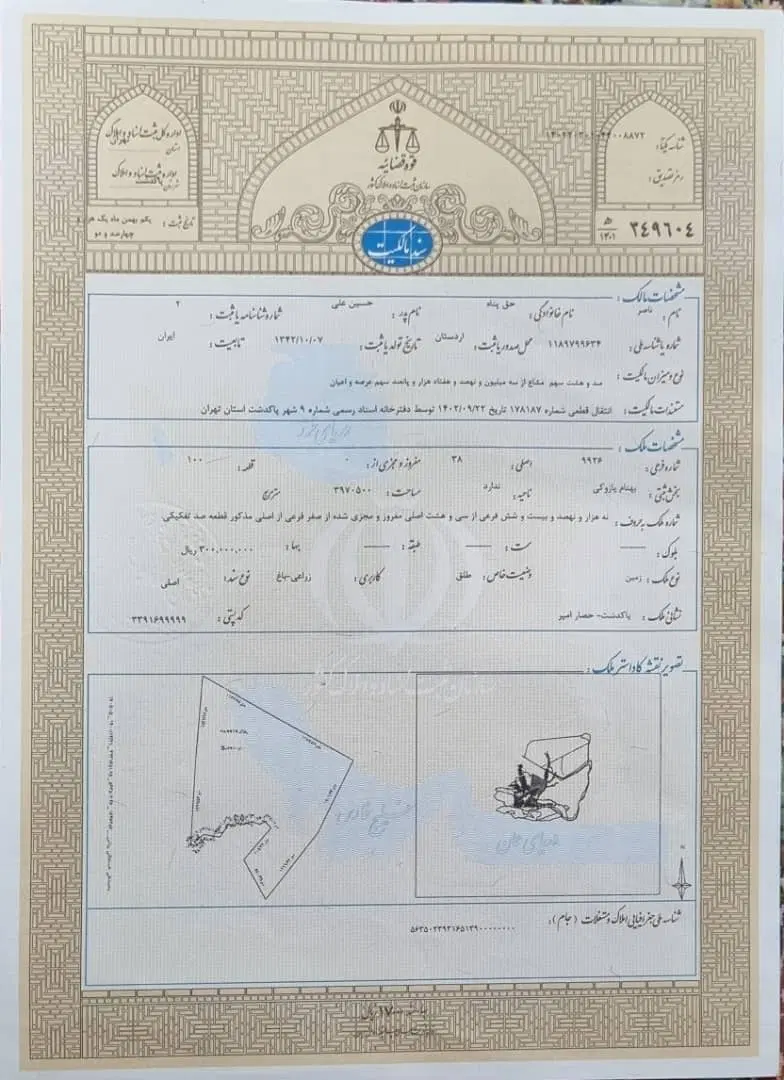 قوه قضائیه
سازمان ثبت اسناد و املاک کشور
اداره کل ثبت اسناد و املاک
استان تهران
اداره ثبت اسناد و املاک
شهرستان پاکدشت
تاریخ ثبت : یکم بهمن ماه یک هزار و
چهارصد و دو
شناسه یکتا:
رمز تصدیق :
۳۴۹۶۰۴
۱۴۰۱
سند مالکیت
مشخصات مالک :
نام : ناصر نام خانوادگی : حق پناه نام پدر : حسین علی شماره شناسنامه یا ثبت : ۲
شماره یا شناسه ملی : ۱۱۸۹۷۹۹۶۳۴ محل صدور یا ثبت : اردستان تاریخ تولد یا ثبت : ۱۳۴۲/۱۰/۰۷ تابعیت : ایران
نوع و میزان مالکیت : صد و هشت سهم مشاع از سه میلیون و نهصد و هفتاد هزار و پانصد سهم عرصه و اعیان
مستندات مالکیت : انتقال قطعی شماره ۱۷۸۱۸۷ تاریخ ۱۴۰۲/۰۹/۲۲ توسط دفترخانه اسناد رسمی شماره ۹ شهر پاکدشت استان تهران
دریای خزر
مشخصات ملک :
شماره فرعی : ۹۹۲۶ اصلی : ۳۸ مفروز و مجزی از : ۰ قطعه : ۱۰۰
بخش ثبتی : بهنام پازوکی ناحیه : ندارد مساحت : ۳۹۷۰۵۰۰ مترمربع
شماره ملک به حروف : نه هزار و نهصد و بیست و شش فرعی از سی و هشت اصلی مفروز و مجزی شده از صفر فرعی از اصلی مذکور قطعه صد تفکیکی
بلوک : سمت : طبقه : بها : ۳۰۰,۰۰۰,۰۰۰ ریال
نوع ملک : زمین وضعیت خاص : طلق کاربری : زراعی-باغ نوع سند : اصلی
نشانی ملک : پاکدشت- حصار امیر کد پستی : ۳۳۹۱۶۹۹۹۹۹
سازمان ثبت اسناد و املاک کشور
تصویر نقشه کاداستر ملک :
خلیج فارس
دریای عمان
شناسه ملی جغرافیایی املاک و مستغلات (جام) :